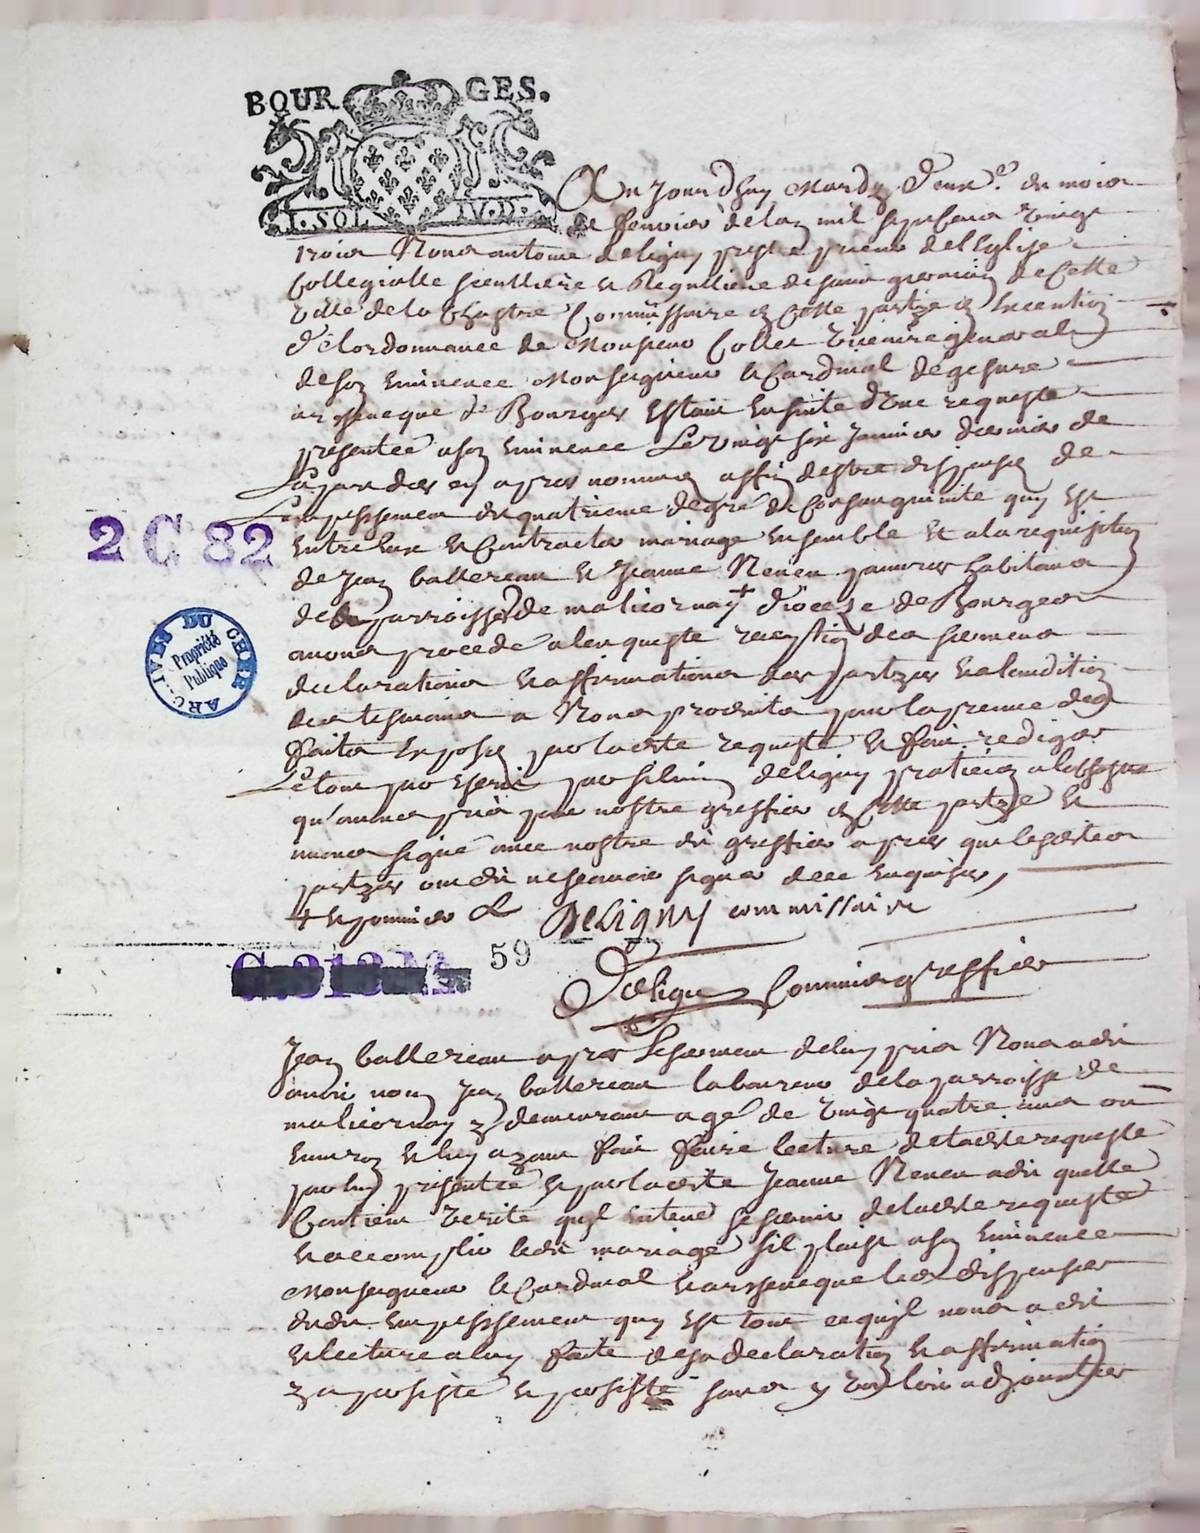 BOURGES.
I. SOL
Aujourdhuy mardy deux.e du mois
de fevrier de lan mil sept cens vingt
trois Nous antoine deligny prestre prieur de lEglise
Collegialle seculliere et Regulliere de saint germain de cette
ville de la Chastre Commissaire en cette partye en execution
de lordonnance de Monsieur Collet vicaire general
de son Eminence Monseigneur le Cardinal de gesvre
archeveque de Bourges Estant ensuite dune requeste
presentée a son Eminence Le vingt six Janvier dernier de
La part des cy apres nommez affin destre dispensez de
Lempeschement du quatrieme degré de Consanguinité quy Est
Entre Eux et Contracter mariage Ensemble Et a la requisition
de Jean ballereau et Jeanne Neveu pauvres habitans
de parroisse de malicornay + diocese de Bourges
avons procede a lenqueste reception des sermens
declarations et affirmations des partyes et a laudition
des tesmoins a Nous produits pour la preuve des
faits Exposez par ladite requeste et fait rediger
Le tout par Escrit par silvin deligny praticien a la Chastre
qu'avons pris pour nostre greffier en cette partye et
avons signé avec nostre dit greffier apres que lesdites
partyes ont dit ne scavoir signer de ce Enquises,
+ et
Deligny commissaire
59
Deligny Commis greffier
Jean ballereau apres le serment de luy pris Nous a dit
avoir nom Jean ballereau laboureur de la parroisse de
malicornay y demeurant agé de vingt quatre ans ou
environ et luy ayant fait faire lecture de ladite requeste
par luy presentée et par ladite Jeanne Neveu a dit quelle
Contient verité quil entend se servir de ladite requeste
et accomplir ledit mariage sil plaist a son Eminence
Monseigneur le Cardinal et archeveque les dispenser
dudit Empeschement quy Est tout ce quil nous a dit
et lecture a luy faite de sa declaration et affirmation
y a persisté et persiste sans y vouloir adjouster
2 C 82
ARCHIVES DU CHER
Propriété
Publique